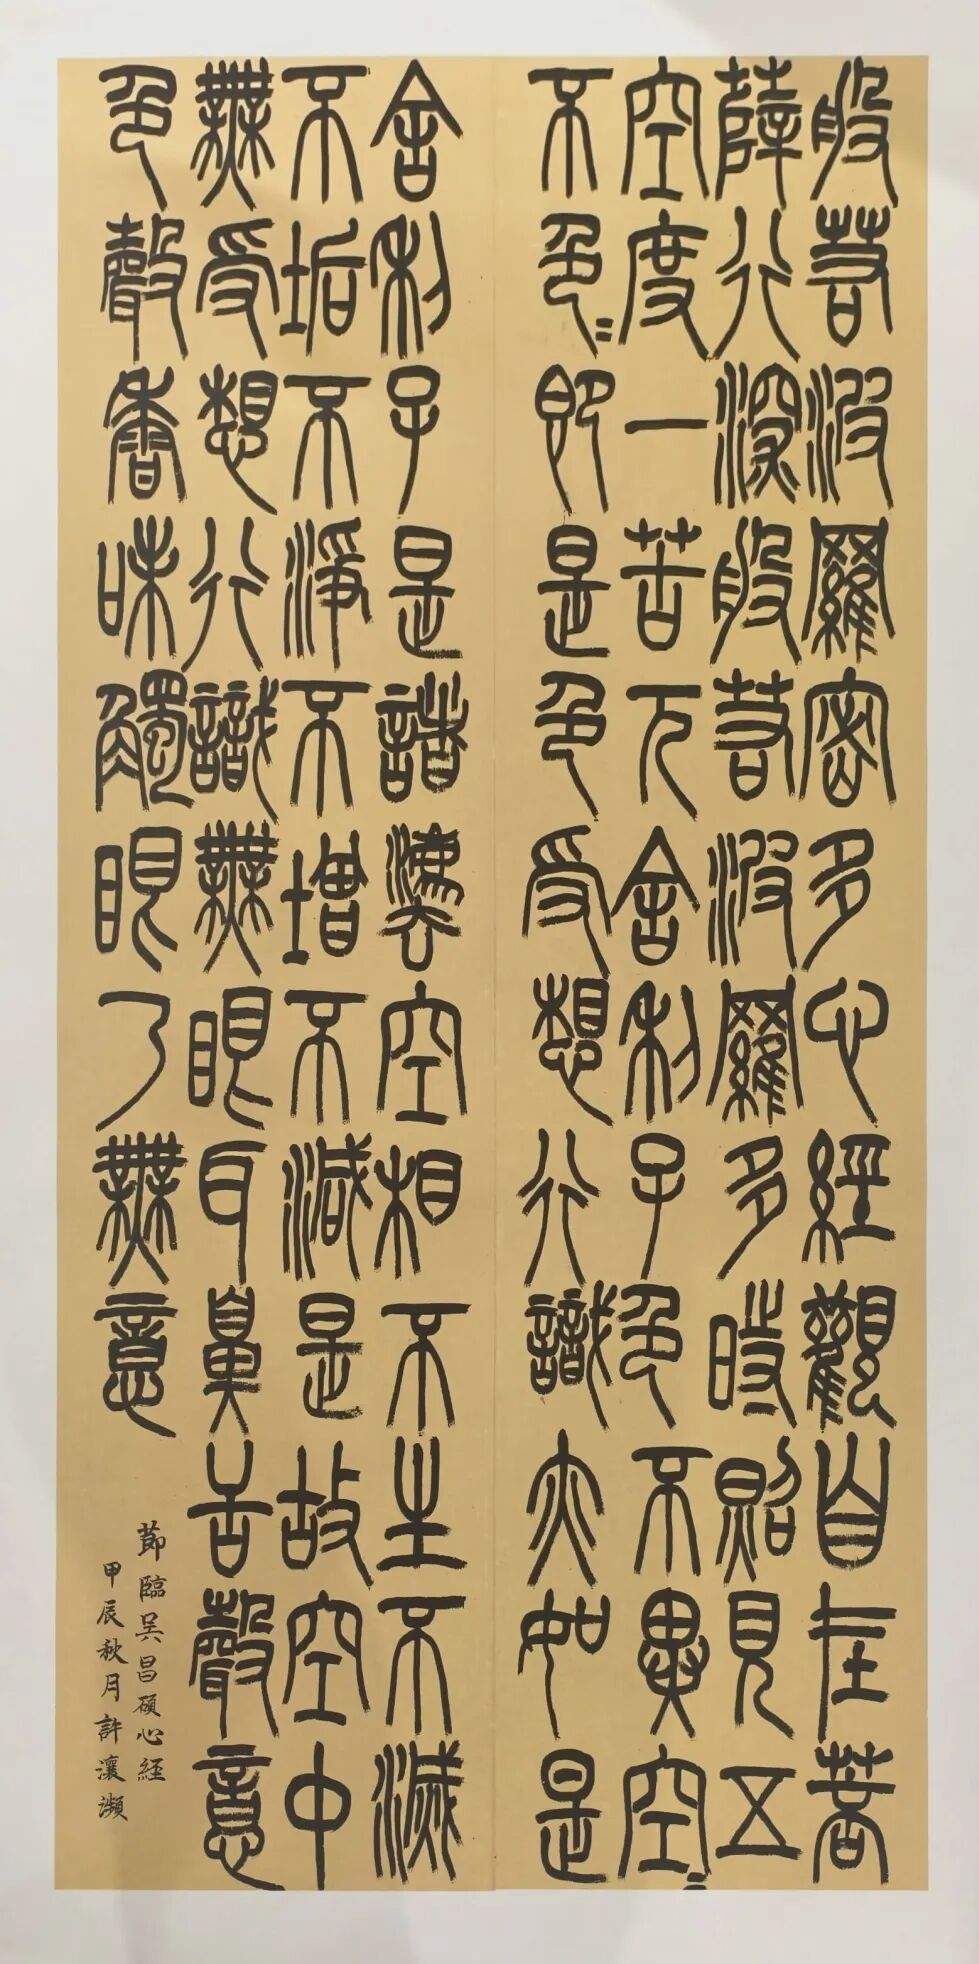 般若波羅密多心經觀自在菩
薩行深般若波羅多時照見五
空度一苦厄舍利子色不異空〻
不色〻即是色受想行識亦如是
舍利子是諸灋空相不生不滅
不垢不淨不增不減是故空中
無受想行識無眼耳鼻舌聲意
色聲香味觸眼乃無意
節臨吳昌碩心經
甲辰秋月許瀼瀕